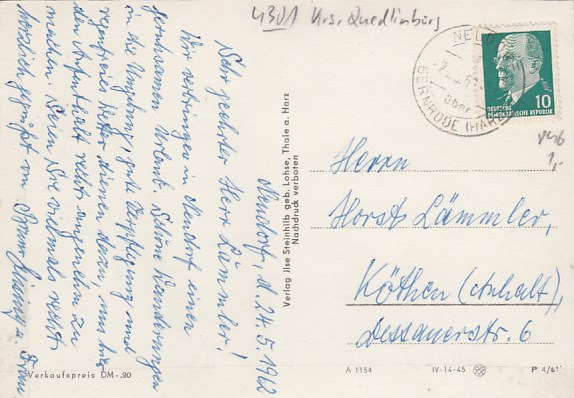 4301 Krs. Quedlinburg
NEUD
über
GERNRODE (HARZ)
DEUTSCHE
DEMOKRATISCHE REPUBLIK
10
1,-
Neudorf, d. 24.5.1962
Sehr geehrter Herr Lämmler!
Wir verbringen in Neudorf einen
geruhsamen Urlaub. Schöne Wanderungen
in die Umgebung, gute Verpflegung und
regenfreies Wetter dienen dazu, uns hier
den Aufenthalt recht angenehm zu
machen. Seien Sie vielmals recht
herzlich gegrüßt von Ihrem u. Frau.
Verlag Ilse Steinhilb geb. Lohse, Thale a. Harz
Nachdruck verboten
Herrn
Horst Lämmler,
Köthen (Anhalt),
Dessauerstr. 6
Verkaufspreis DM -.20
A 1354 IV-14-45 P 4/61